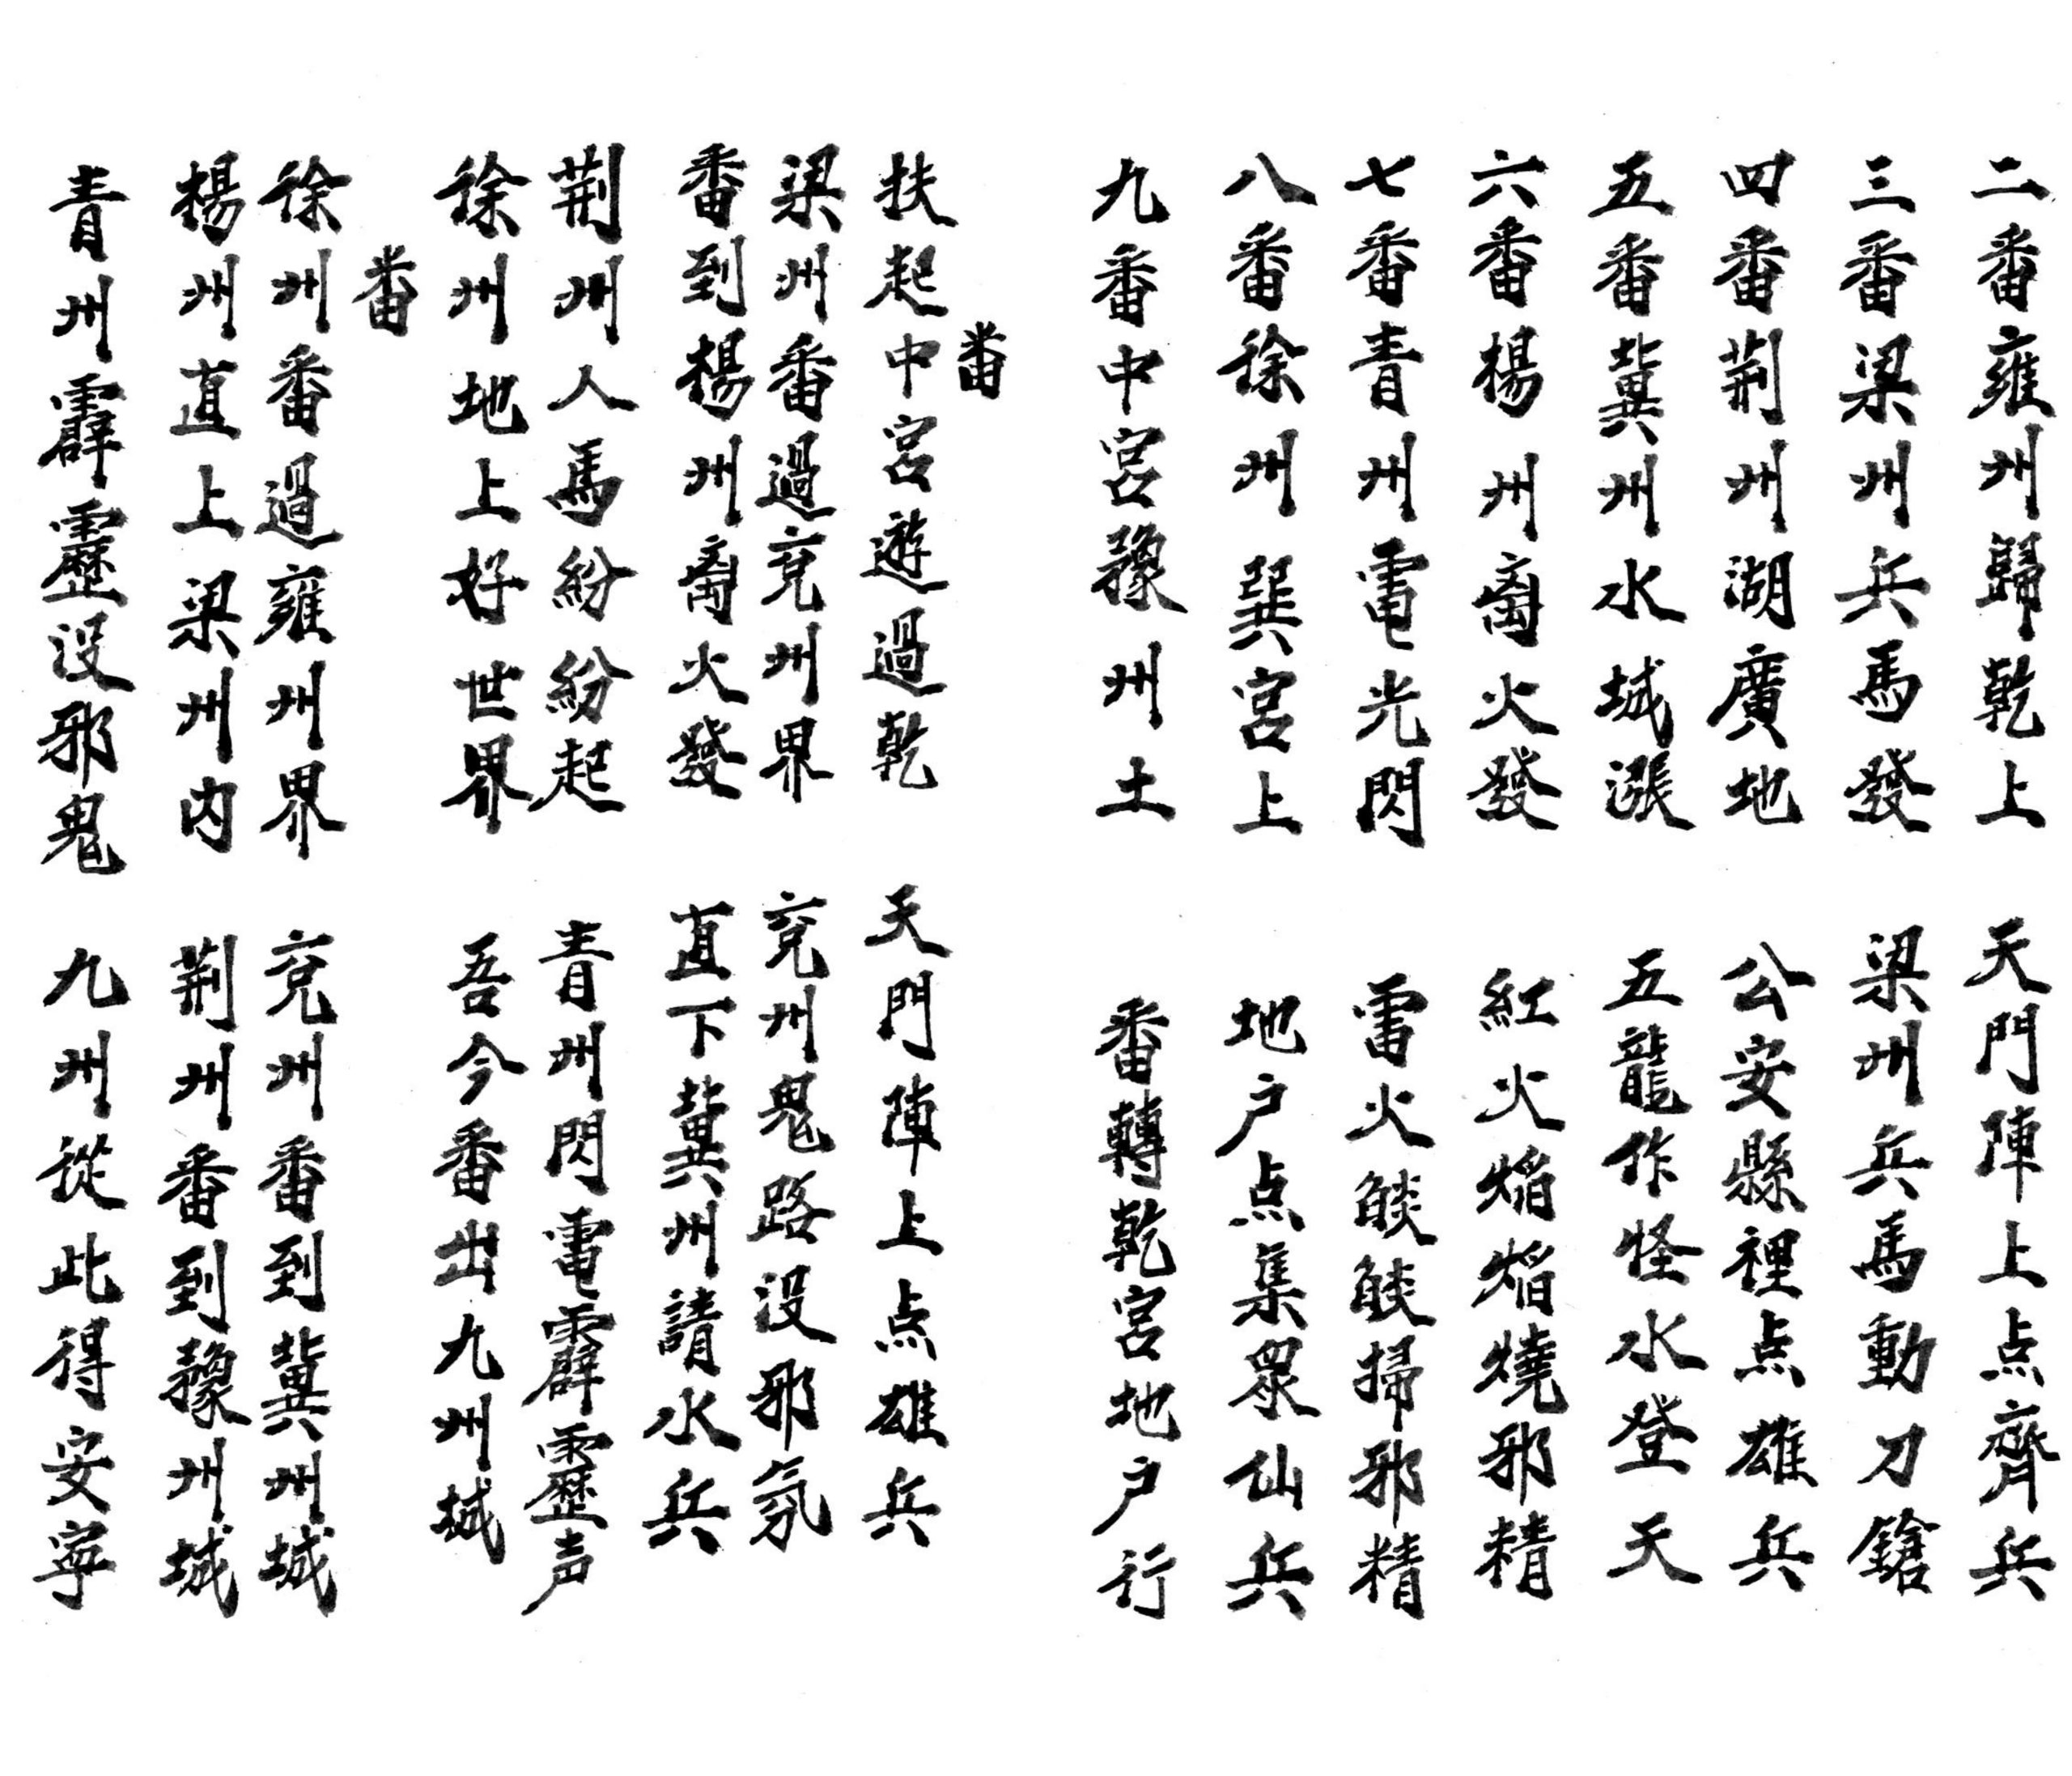 二番雍州歸乾上　天門陣上点齊兵
三番梁州兵馬發　梁州兵馬動刀鎗
四番荆州湖廣地　公安縣裡点雄兵
五番冀州水城漲　五龍作怪水登天
六番楊州离火發　紅火焰焰燒邪精
七番青州電光閃　雷火燄燄掃邪精
八番徐州巽宮上　地户点集眾仙兵
九番中宮豫州土　番轉乾宮地户行
番
扶起中宮遊過乾　天門陣上点雄兵
梁州番過兗州界　兗州鬼路没邪氛
番到楊州离火發　直下冀州請水兵
荆州人馬紛紛起　青州閃電霹靂声
徐州地上好世界　吾今番出九州城
番
徐州番過雍州界　兗州番到冀州城
楊州直上梁州内　荆州番到豫州城
青州霹靂没邪鬼　九州從此得安寧